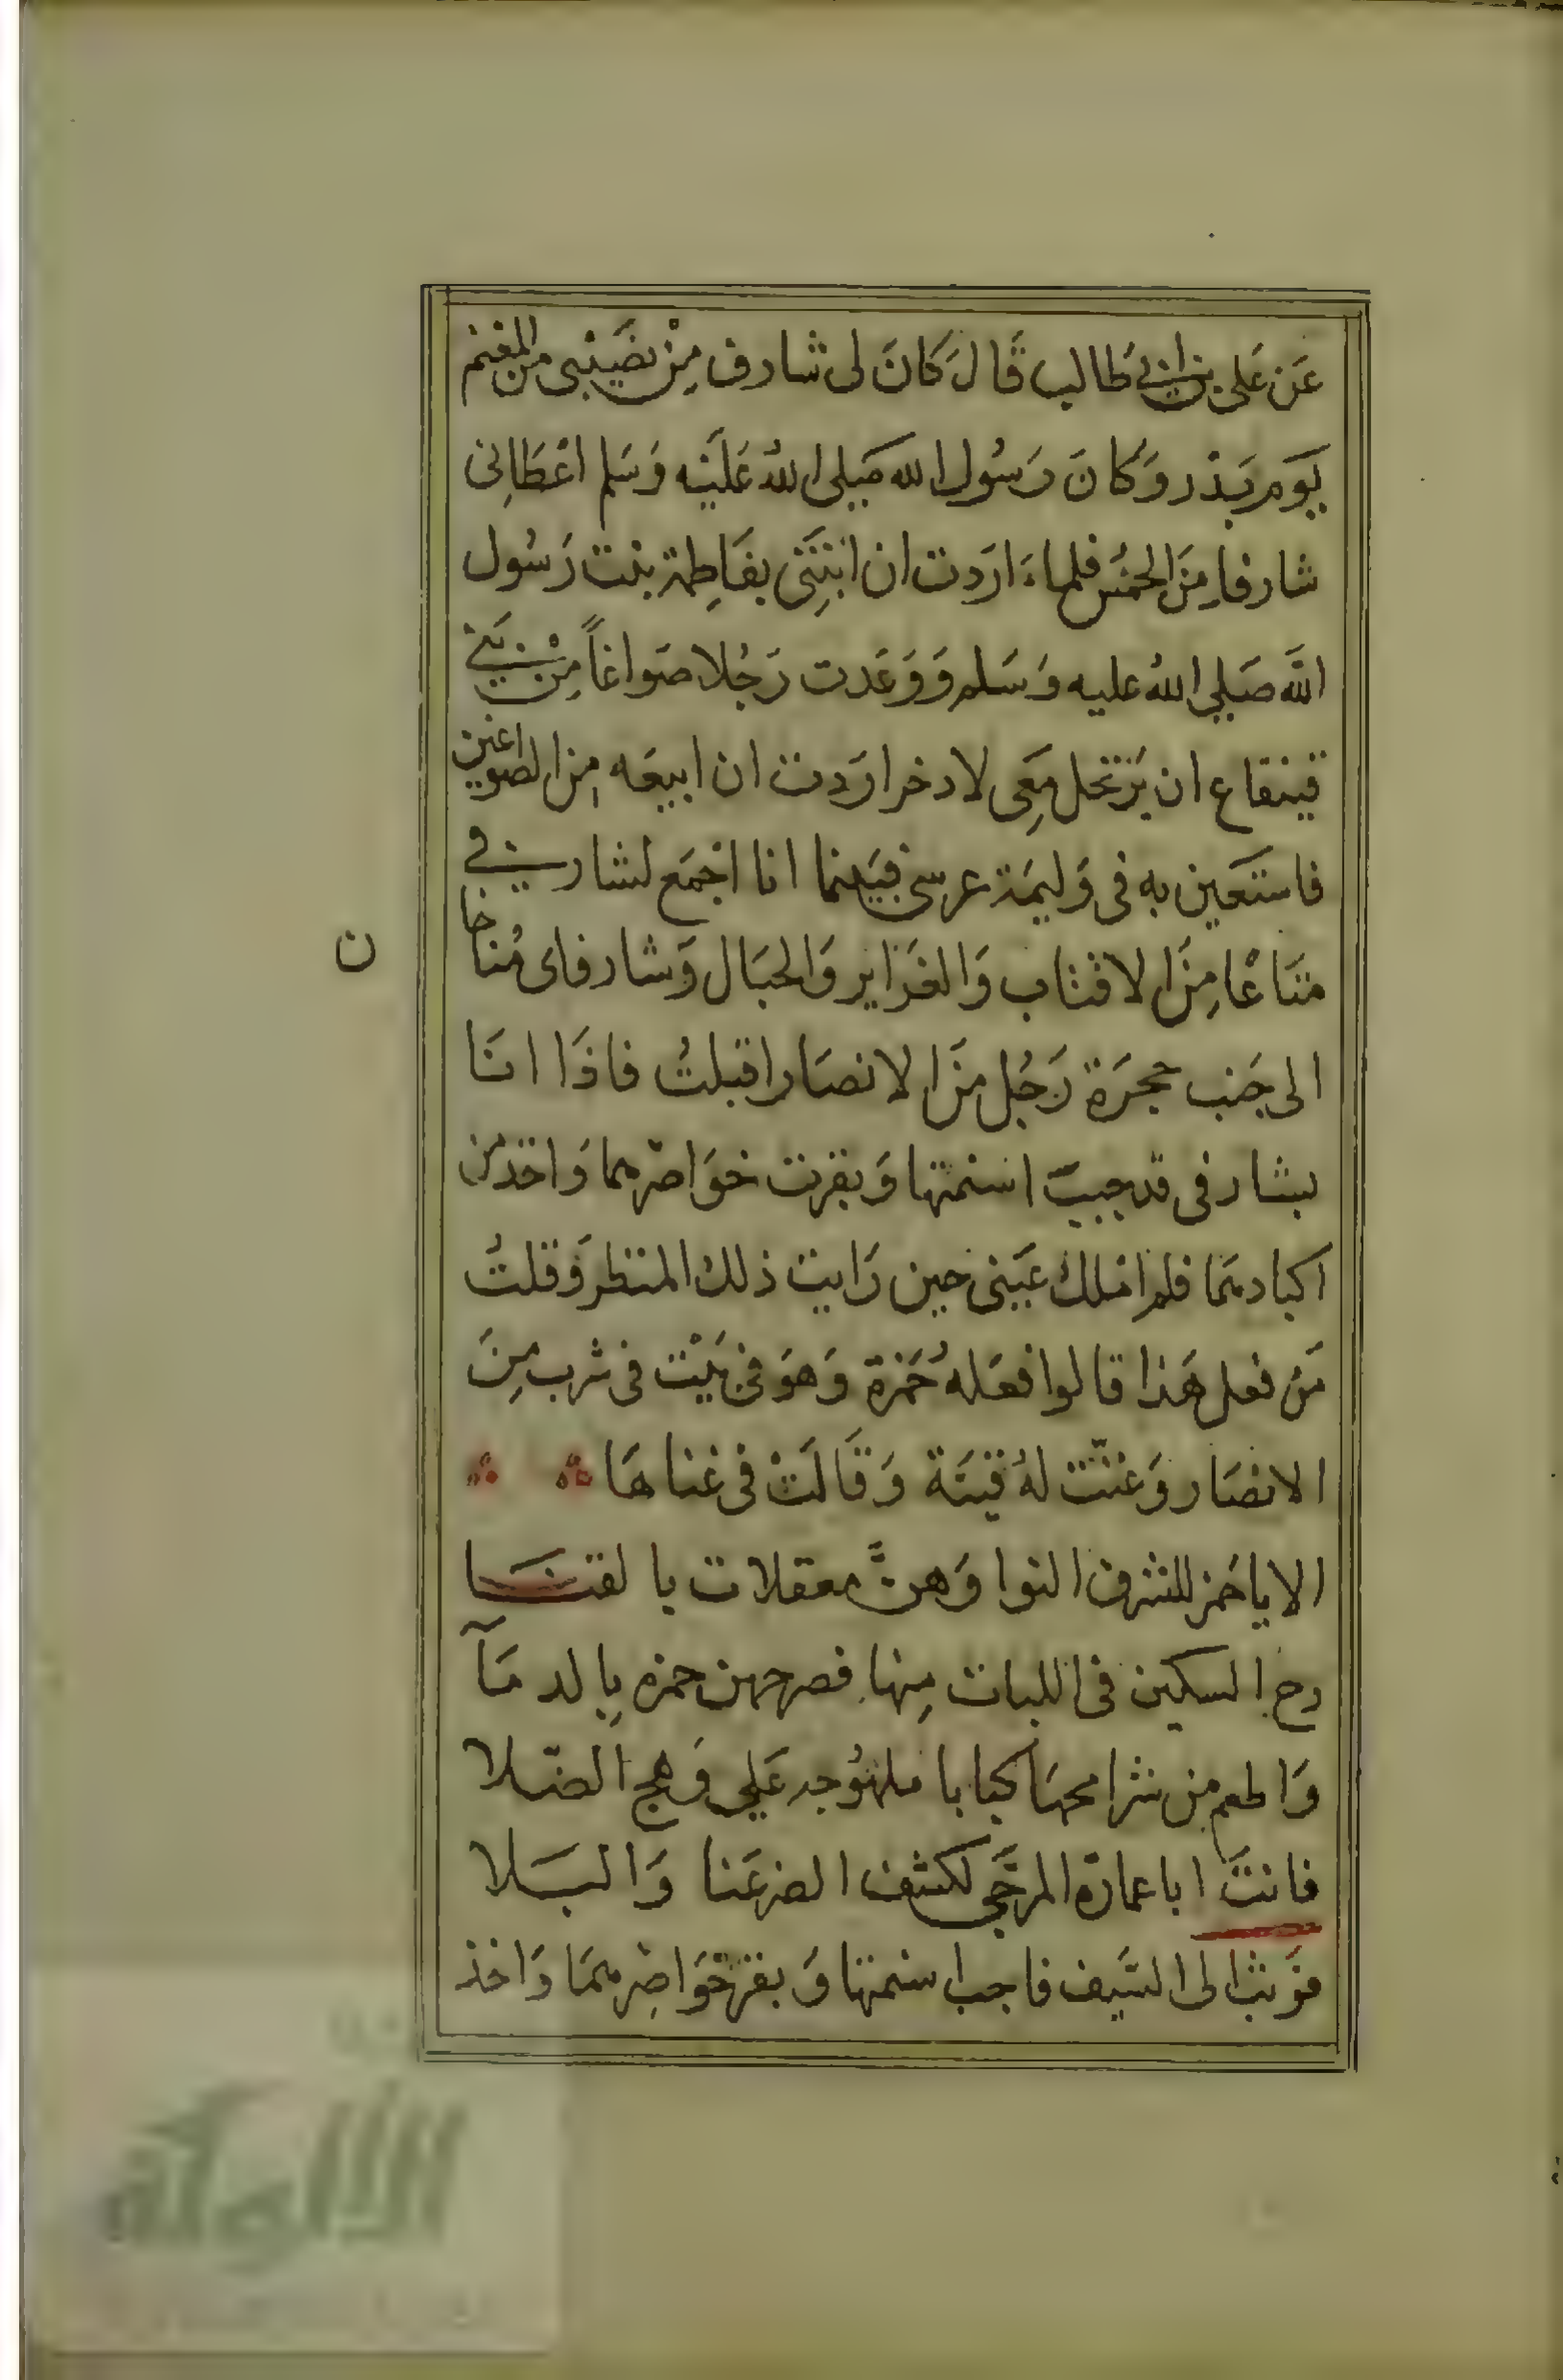 عَن عَلى بن ابى طَالب قَالَ كَانَ لى شارف مِنْ نصَيْبى من المغنم
يَوَم بَدْر وَكَانَ رَسُول الله صَلى اللهُ عَلَيْه وَسَلم اعْطَانِى
شارفا مِنَ الخمُس فلما اَرَدت ان ابْتَنِى بفَاطِمة بنت رَسُول
اللَّه صَلى اللهُ عليه وَسَلم وَوَعَدت رَجُلا صَواغاً مِنْ بَنى
قينقاع ان يَرْتحل مَعِى لادخر ارَدت ان ابيعَه مِن الصواغين
فاستَعين به فى وَليمَة عرسى فبَينما انا اجْمَع لشارفى
مَتَاعْا مِنَ الاقتاب وَالغَرَاير وَالحبَال وَشارفاى مُناخا
ن
الى جَنب حجرَة رَجُل مِنَ الانصَار اقبلتُ فاذَا انَا
بشارفى قد جببت اسنمتها وَبقرت خوَاصرهما وَاخذ من
اكبادهمَا فلم املك عَينى حين رَايت ذلك المنظر وَقلتُ
مَن فعل هَذا قالوا فعَله حُمَزة وَهوَ فى بَيْت فى شرب مِنَ
الانصَار وَغنّت لهُ قينَة وَقَالَتْ فى غناهَا
الا يا حَمز للشرف النوا وَهنَّ معقلات بالفنَا
ضع السكين فى اللبات مِنها فضرجهن حمزه بِالدمَآ
وَاطعم من شرامحهَا كبابا ملهوُجه عَلى وَهج الصّلا
فانتَ ابا عمارَة المرجَّى لكشف الضر عَنا وَالبَلا
فوَثب الى السَّيف فاجب اسنمتها وَبقر خوَاصِرهمَا وَاخذ